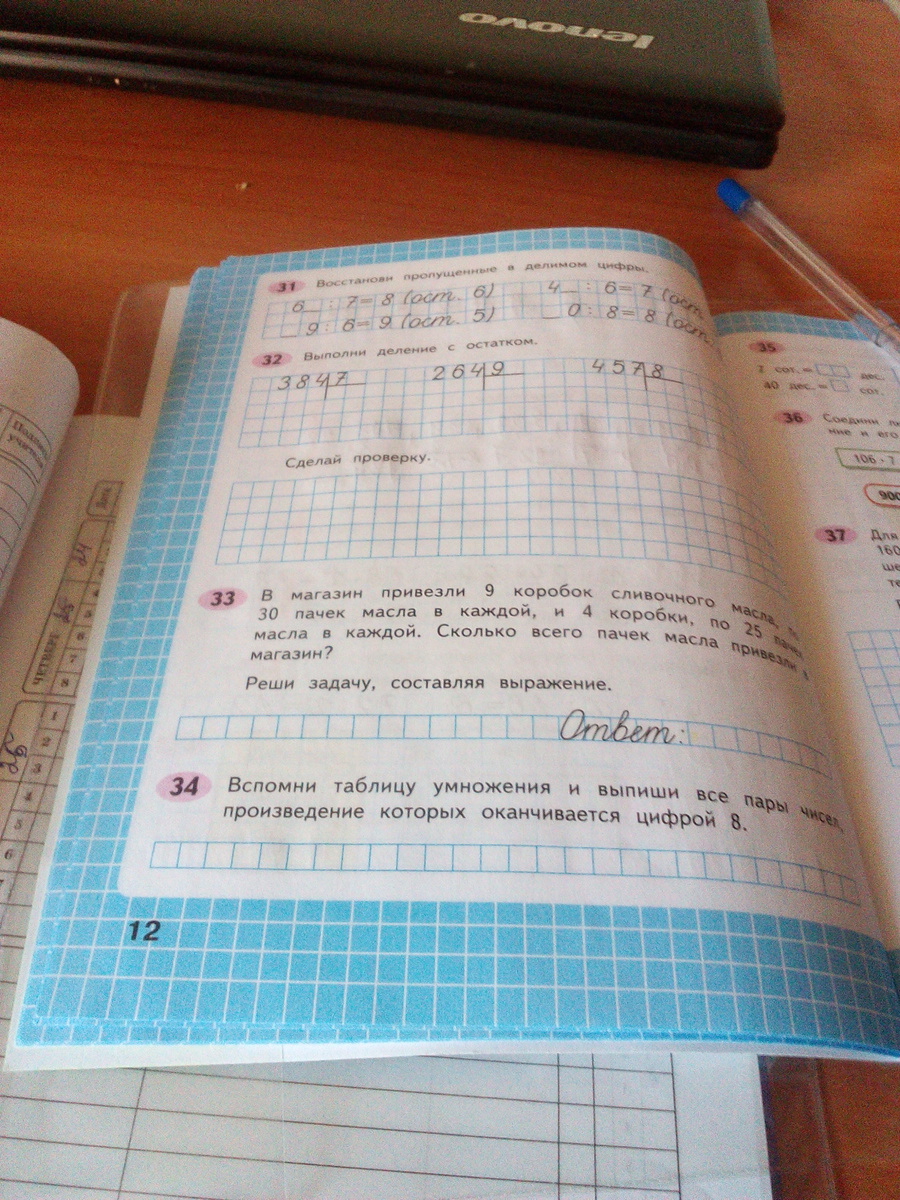 lenovo
31 Восстанови пропущенные в делимом цифры.
6_ : 7 = 8 (ост. 6) 4_ : 6 = 7 (ост.
_9 : 6 = 9 (ост. 5) _0 : 8 = 8 (ост.
32 Выполни деление с остатком.
384 7 264 9 457 8
Сделай проверку.
33 В магазин привезли 9 коробок сливочного масла,
30 пачек масла в каждой, и 4 коробки, по 25 пачек
масла в каждой. Сколько всего пачек масла привезли в
магазин?
Реши задачу, составляя выражение.
Ответ:
34 Вспомни таблицу умножения и выпиши все пары чисел,
произведение которых оканчивается цифрой 8.
12
35
7 сот. = дес.
40 дес. = сот.
36 Соедини
ние и его
106 · 7
900
37 Для
160
ше
те
четверг
24
25
26